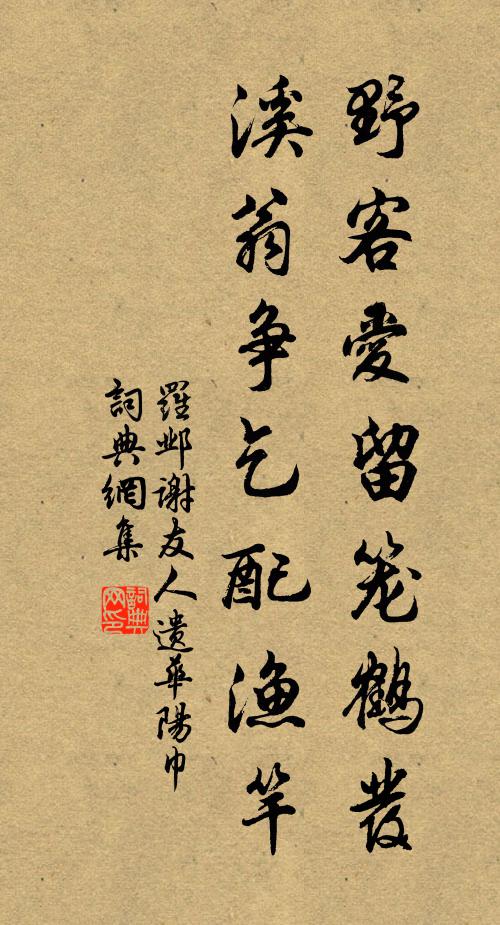 野客愛留笼鶴發
溪翁爭乞配漁竿
羅邺谢友人遺華陽巾
詞典網集
詞典网印